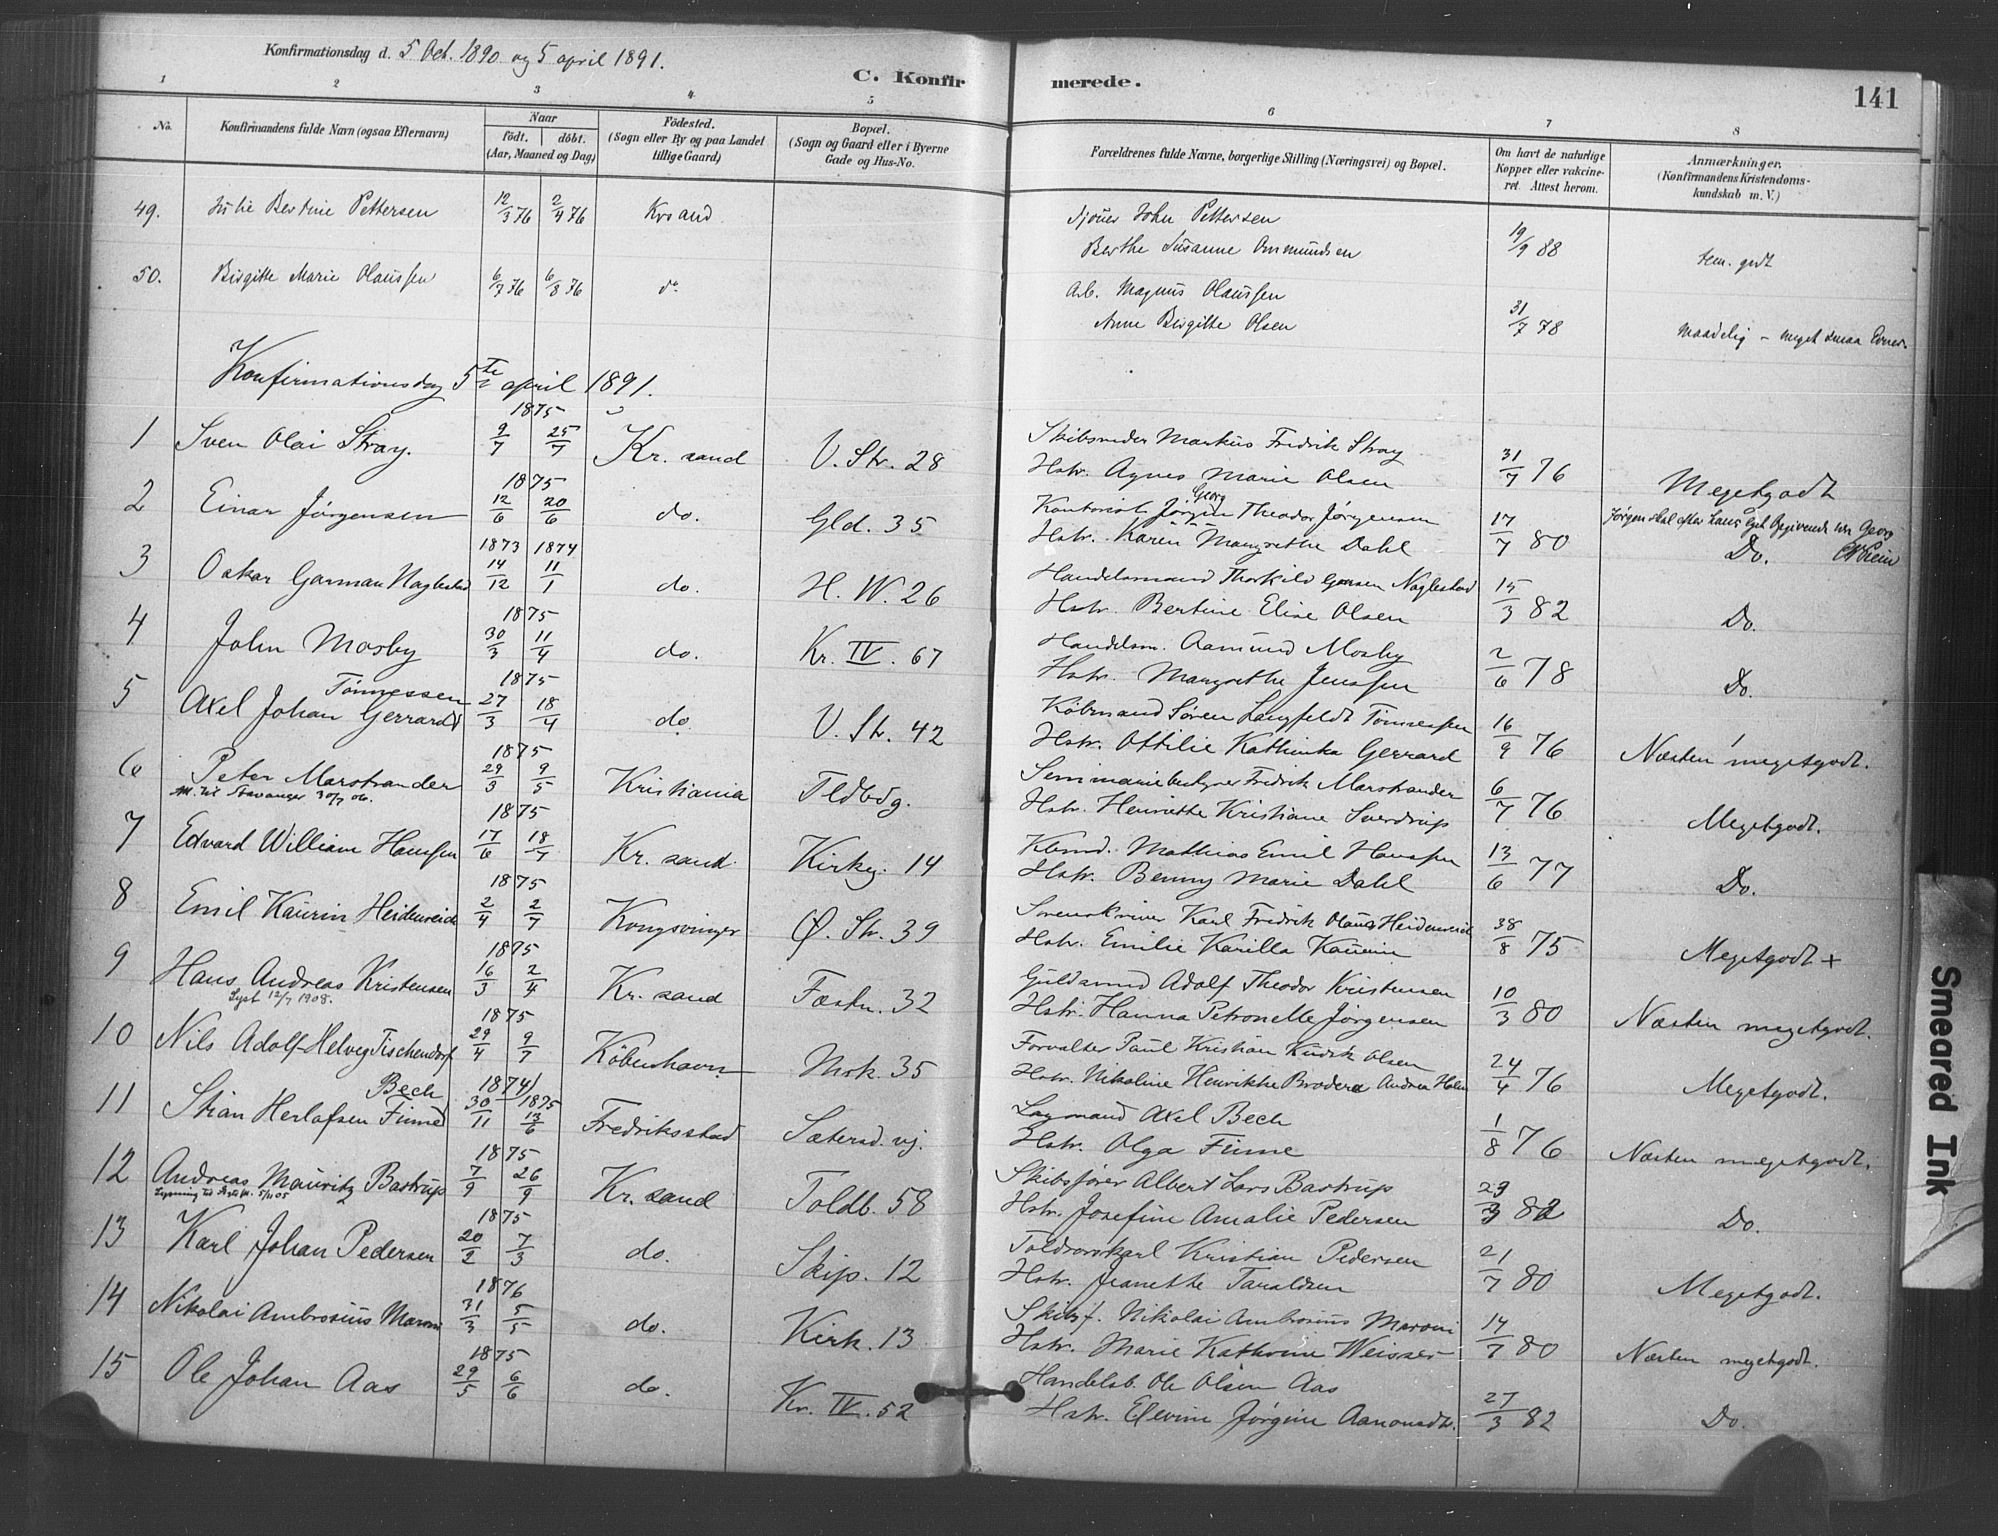 Konfirmationsdag d. 5 Oct. 1890 og 5 april 1891.
C. Konfirmerede.
141
1 2 3 4 5 6 7 8
No.
Konfirmandens fulde Navn (ogsaa Efternavn)
Naar
födt. döbt.
(Aar, Maaned og Dag)
Födested.
(Sogn eller By og paa Landet
tillige Gaard)
Bopæl.
(Sogn og Gaard eller i Byerne
Gade og Hus-No.
Forældrenes fulde Navne, borgerlige Stilling (Næringsvei) og Bopæl.
Om havt de naturlige
Kopper eller vakcine-
ret. Attest herom.
Anmærkninger.
(Konfirmandens Kristendoms-
kundskab m. V.)
49. Julie Bertine Pettersen 12/3 76 2/4 76 Krsand Sjouer John Pettersen
Berthe Susanne Ommundsen 19/9 88 tem. godt
50. Birgitte Marie Olaussen 6/7 76 6/8 76 do Arb. Magnus Olaussen
Anne Birgitte Olsen 31/7 78 maadelig - meget smaa Evner.
Konfirmationsdag 5te april 1891.
1875
1 Sven Olai Stray. 9/7 25/7 Kr. sand V. Str. 28 Skibsreder Markus Fredrik Stray
Hstr. Agnes Marie Olsen 31/7 76 Megetgodt
1875
2 Einar Jørgensen 12/6 20/6 do. Gld. 35 Kontorist Jørgen Georg Theodor Jørgensen
Hstr. Karen Margrethe Dahl 17/7 80 Do.
Jørgen skal efter hans eget Opgivende være Georg
1873 1874
3 Oskar Garman Naglestad 14/12 11/1 do. H. W. 26 Handelsmand Thorkild Naglestad
Hstr. Bertine Elise Olsen 15/3 82 Do.
1875
4 John Mosby 30/3 11/4 do. Kr. IV. 67 Handelsm. Aamund Mosby
Hstr. Margrethe Jenssen 2/6 78 Do.
1875
5 Axel Johan Gerrard Tönnessen 27/3 18/4 do. V. St. 42 Köbmand Sören Langfeldt Tönnessen
Hstr. Ottilie Kathinka Gerrard 16/9 76 Næsten megetgodt.
1875
6 Peter Marstrander 29/3 9/5 Kristiania Tldbdg. Seminariebestyrer Fredrik Marstrander
Att. til Stavanger 30/7 06.
Hstr. Henriette Kristiane Sverdrup 6/7 76 Megetgodt.
1875
7 Edvard William Hanssen 17/6 18/7 Kr. sand Kirkeg. 14 Kbmd. Mathias Emil Hanssen
Hstr. Benny Marie Dahl 13/6 77 Do.
1875
8 Emil Kaurin Heidenreich 2/4 2/7 Kongsvinger Ø. Str. 39 Sorenskriver Karl Fredrik Olaus Heidenreich
Hstr. Emilie Karilla Kaurin 38/8 75 Megetgodt +
1875
9 Hans Andreas Kristensen 16/3 2/4 Kr. sand Fæstn. 32 Guldsmed Adolf Theodor Kristensen
Lyst 12/7 1908.
Hstr. Hanna Petronelle Jørgensen 10/3 80 Næsten megetgodt.
1875
10 Nils Adolf Helvig Tischendorf 29/4 9/7 Köbenhavn Mrk. 35 Forvalter Paul Kristian Olsen
Hstr. Nikoline Henrikke Andrea Holm 24/4 76 Megetgodt.
1874 1875
11 Stian Herlofsen Finne Bech 30/11 13/6 Fredriksstad Sætersd. vj. Lagmand Axel Bech
Hstr. Olga Finne 1/8 76 Næsten megetgodt.
1875
12 Andreas Mauritz Bastrup 7/9 26/9 Kr. sand Toldb. 58 Skibsfører Albert Lars Bastrup
Lysning til 5/11 05
Hstr. Josefine Amalie Pedersen 29/3 82 Do.
1875
13 Karl Johan Pedersen 20/2 7/3 do. Skip. 12 Toldrorskarl Kristian Pedersen
Hstr. Jeanette Taraldsen 21/7 80 Megetgodt.
1876
14 Nikolai Ambrosius Maroni 31/3 5/5 do. Kirk. 13 Skibsf. Nikolai Ambrosius Maroni
Hstr. Marie Kathrine Weisser 14/7 80 Næsten megetgodt.
1875
15 Ole Johan Aas 29/5 6/6 do. Kr. IV. 52 Handelsb. Ole Olsen Aas
Hstr. Elevine Jørgine Aanonsdtr. 27/3 82 Do.
Smeared Ink